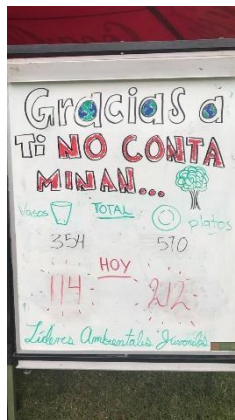 Gracias a
Ti NO CONTA
MINAN...
Vasos TOTAL platos
354 570
HOY
114 212
Líderes Ambientales Juveniles